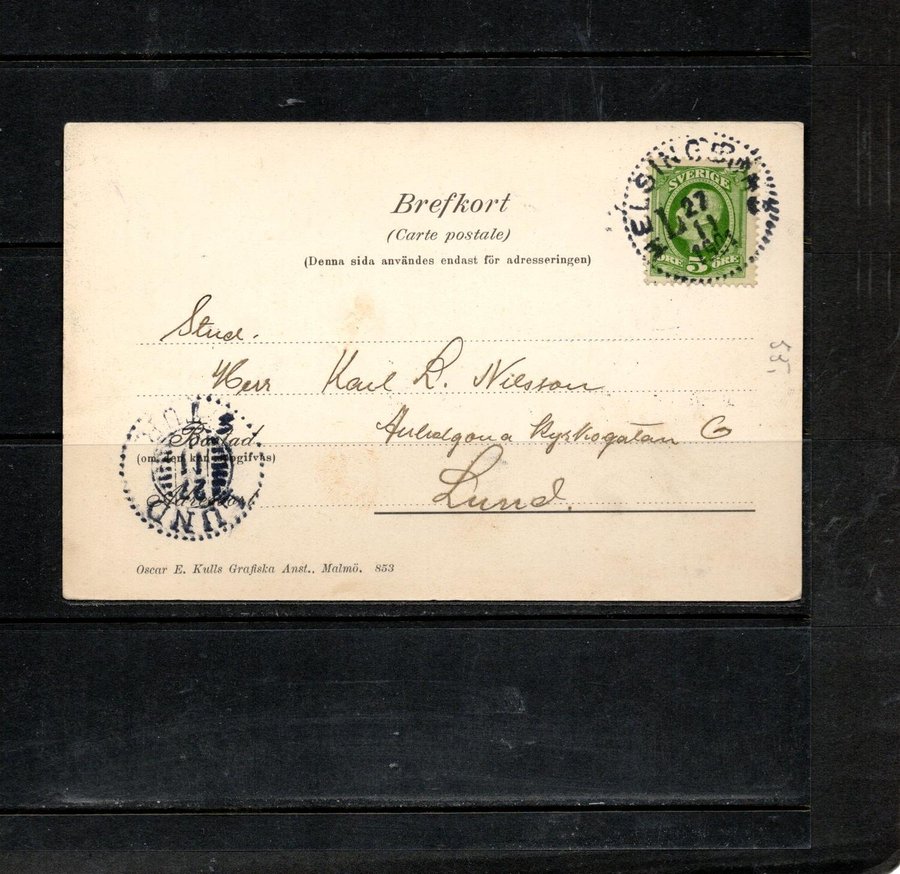 Brefkort
(Carte postale)
(Denna sida användes endast för adresseringen)
HELSINGBORG
27
11
SVERIGE
ÖRE 5 ÖRE
Stud.
Herr Karl L. Nilsson
Bostad
(om den kan uppgifvas)
Kyrkogatan 6
Lund.
Adressort
LUND
27
11
55:-
Oscar E. Kulls Grafiska Anst., Malmö. 853